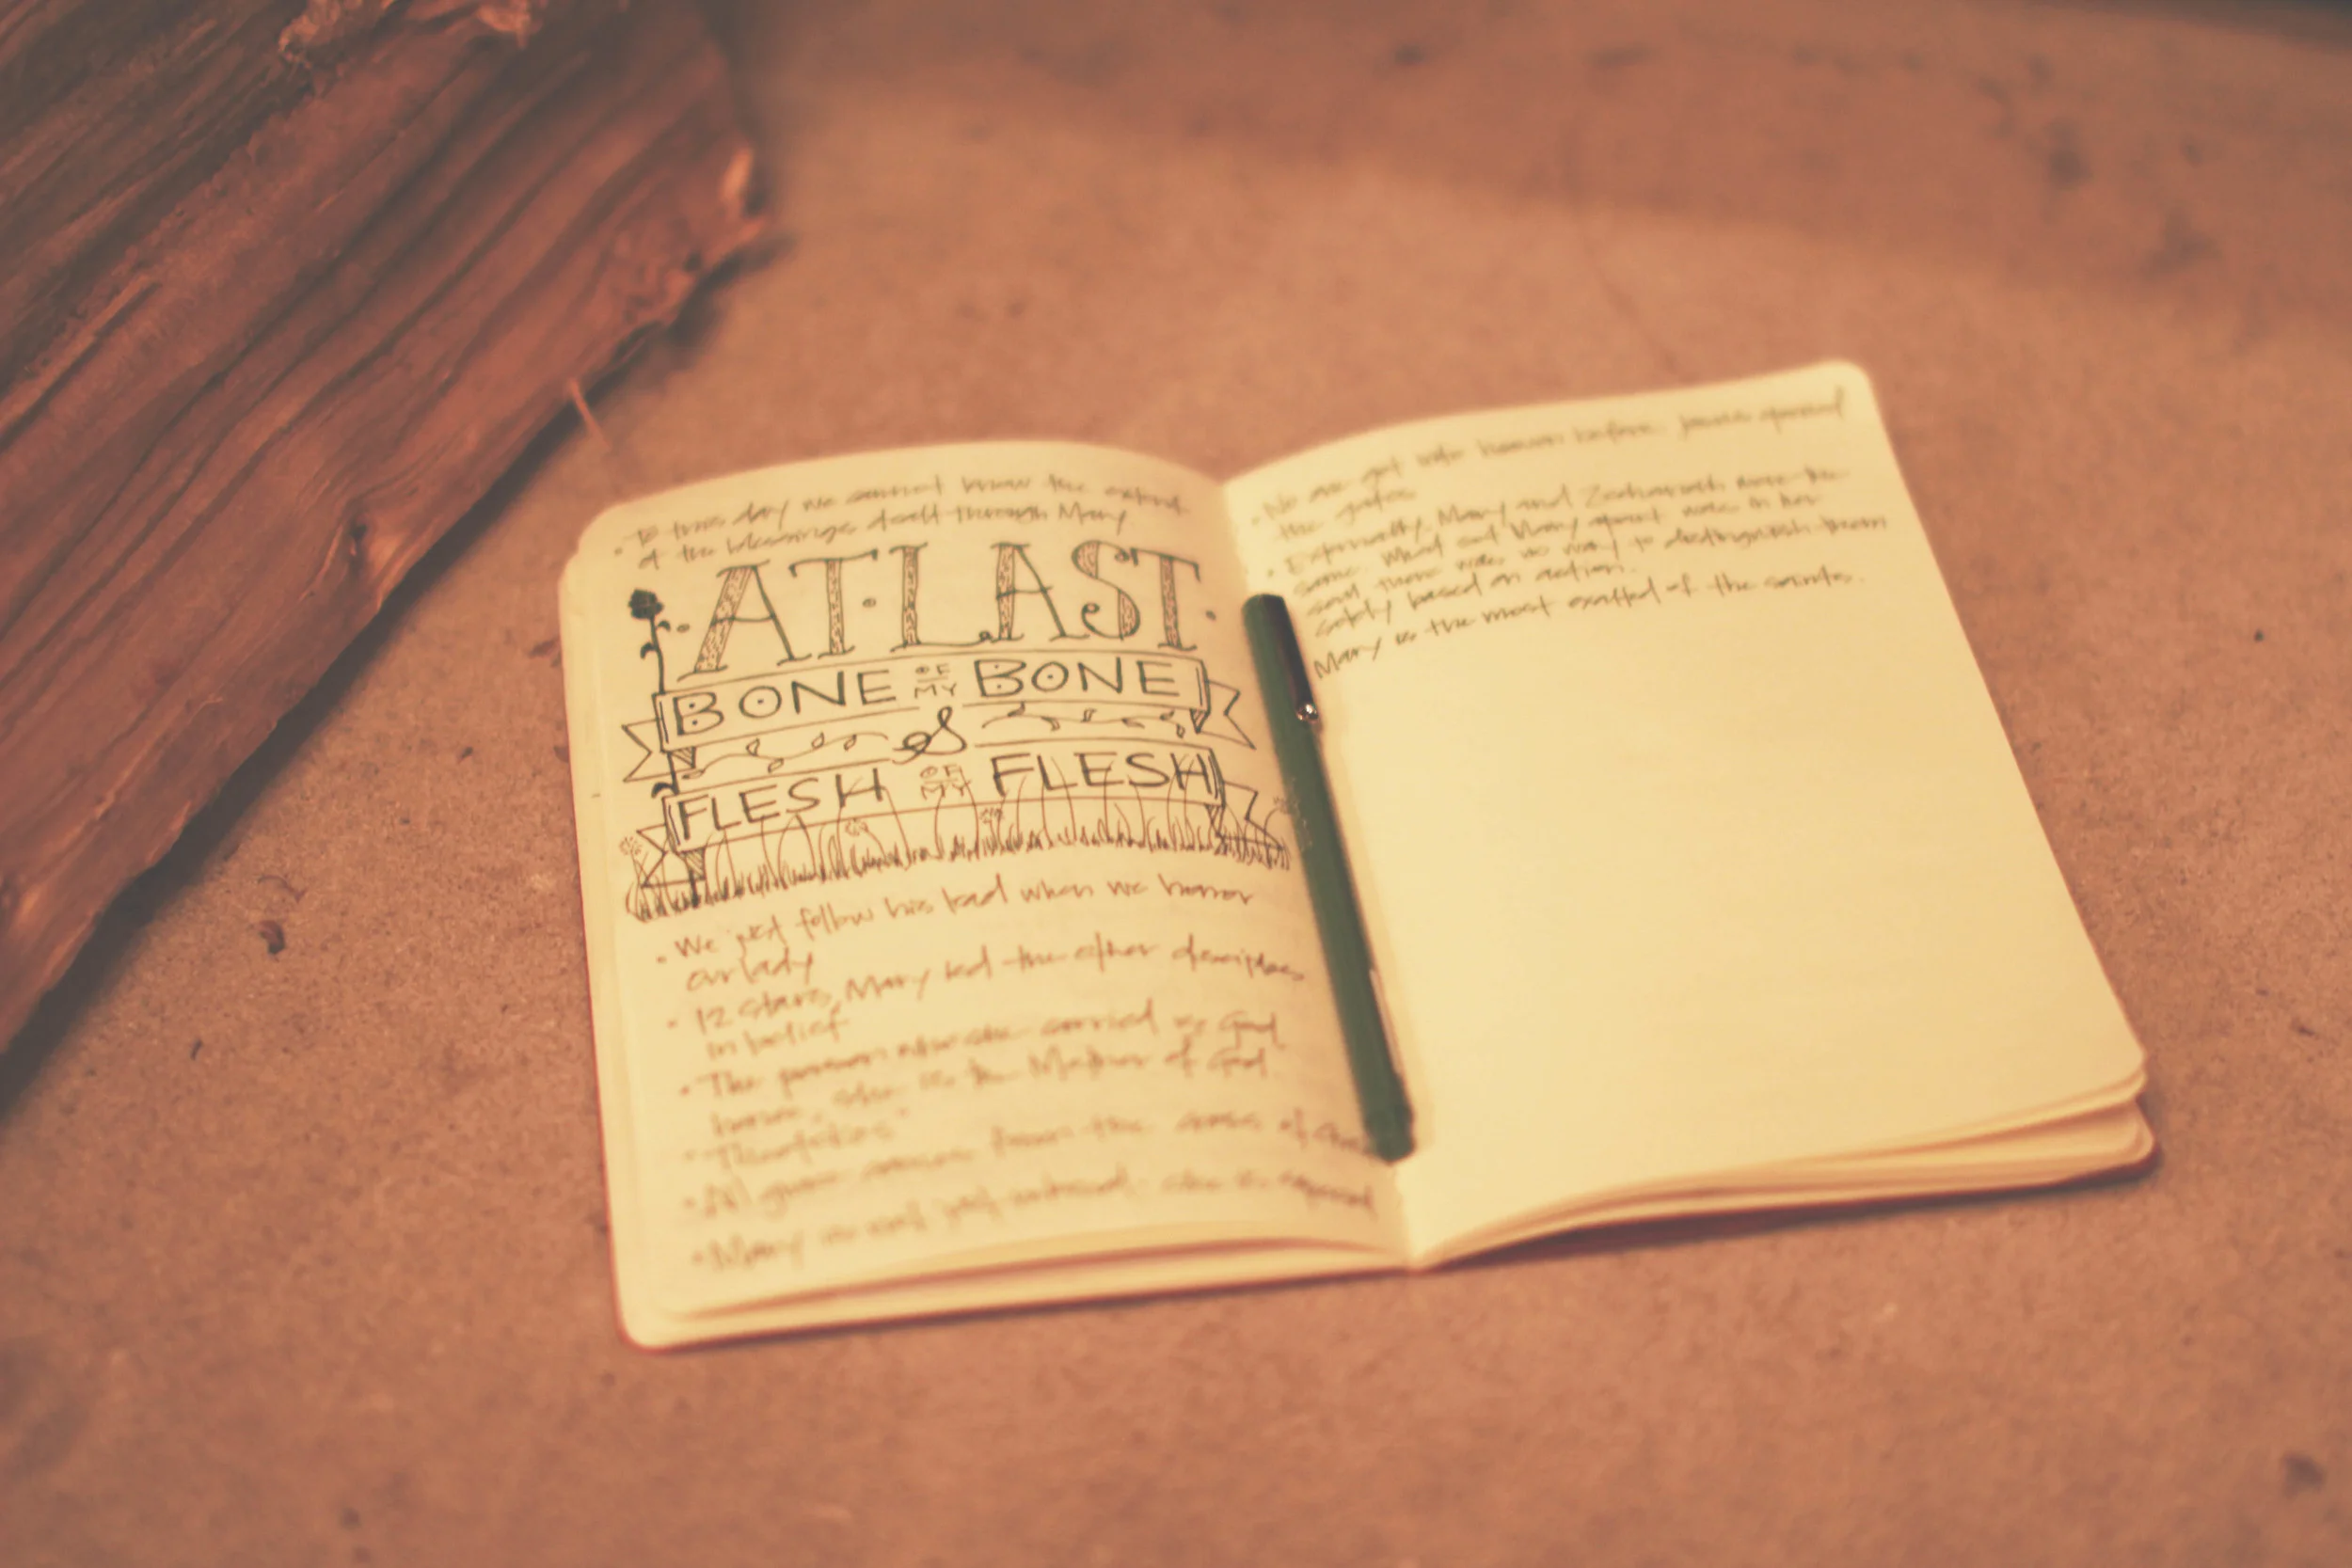 • To this day we cannot know the extent
of the blessings dealt through Mary
·AT·LAST·
BONE OF MY BONE
&
FLESH OF MY FLESH
• We just follow his lead when we honor
our lady
• 12 stars, Mary led the other disciples
in belief
• The person who she carried is God
hence, she is the Mother of God
• "Theotokos"
• All grace comes from the cross of
• Mary was not; she is
• No one got into heaven before Jesus opened
the gates
• Externally, Mary and Zechariah were the
same. What set Mary apart was in her
soul, there was no way to distinguish them
solely based on action.
Mary is the most exalted of the saints.